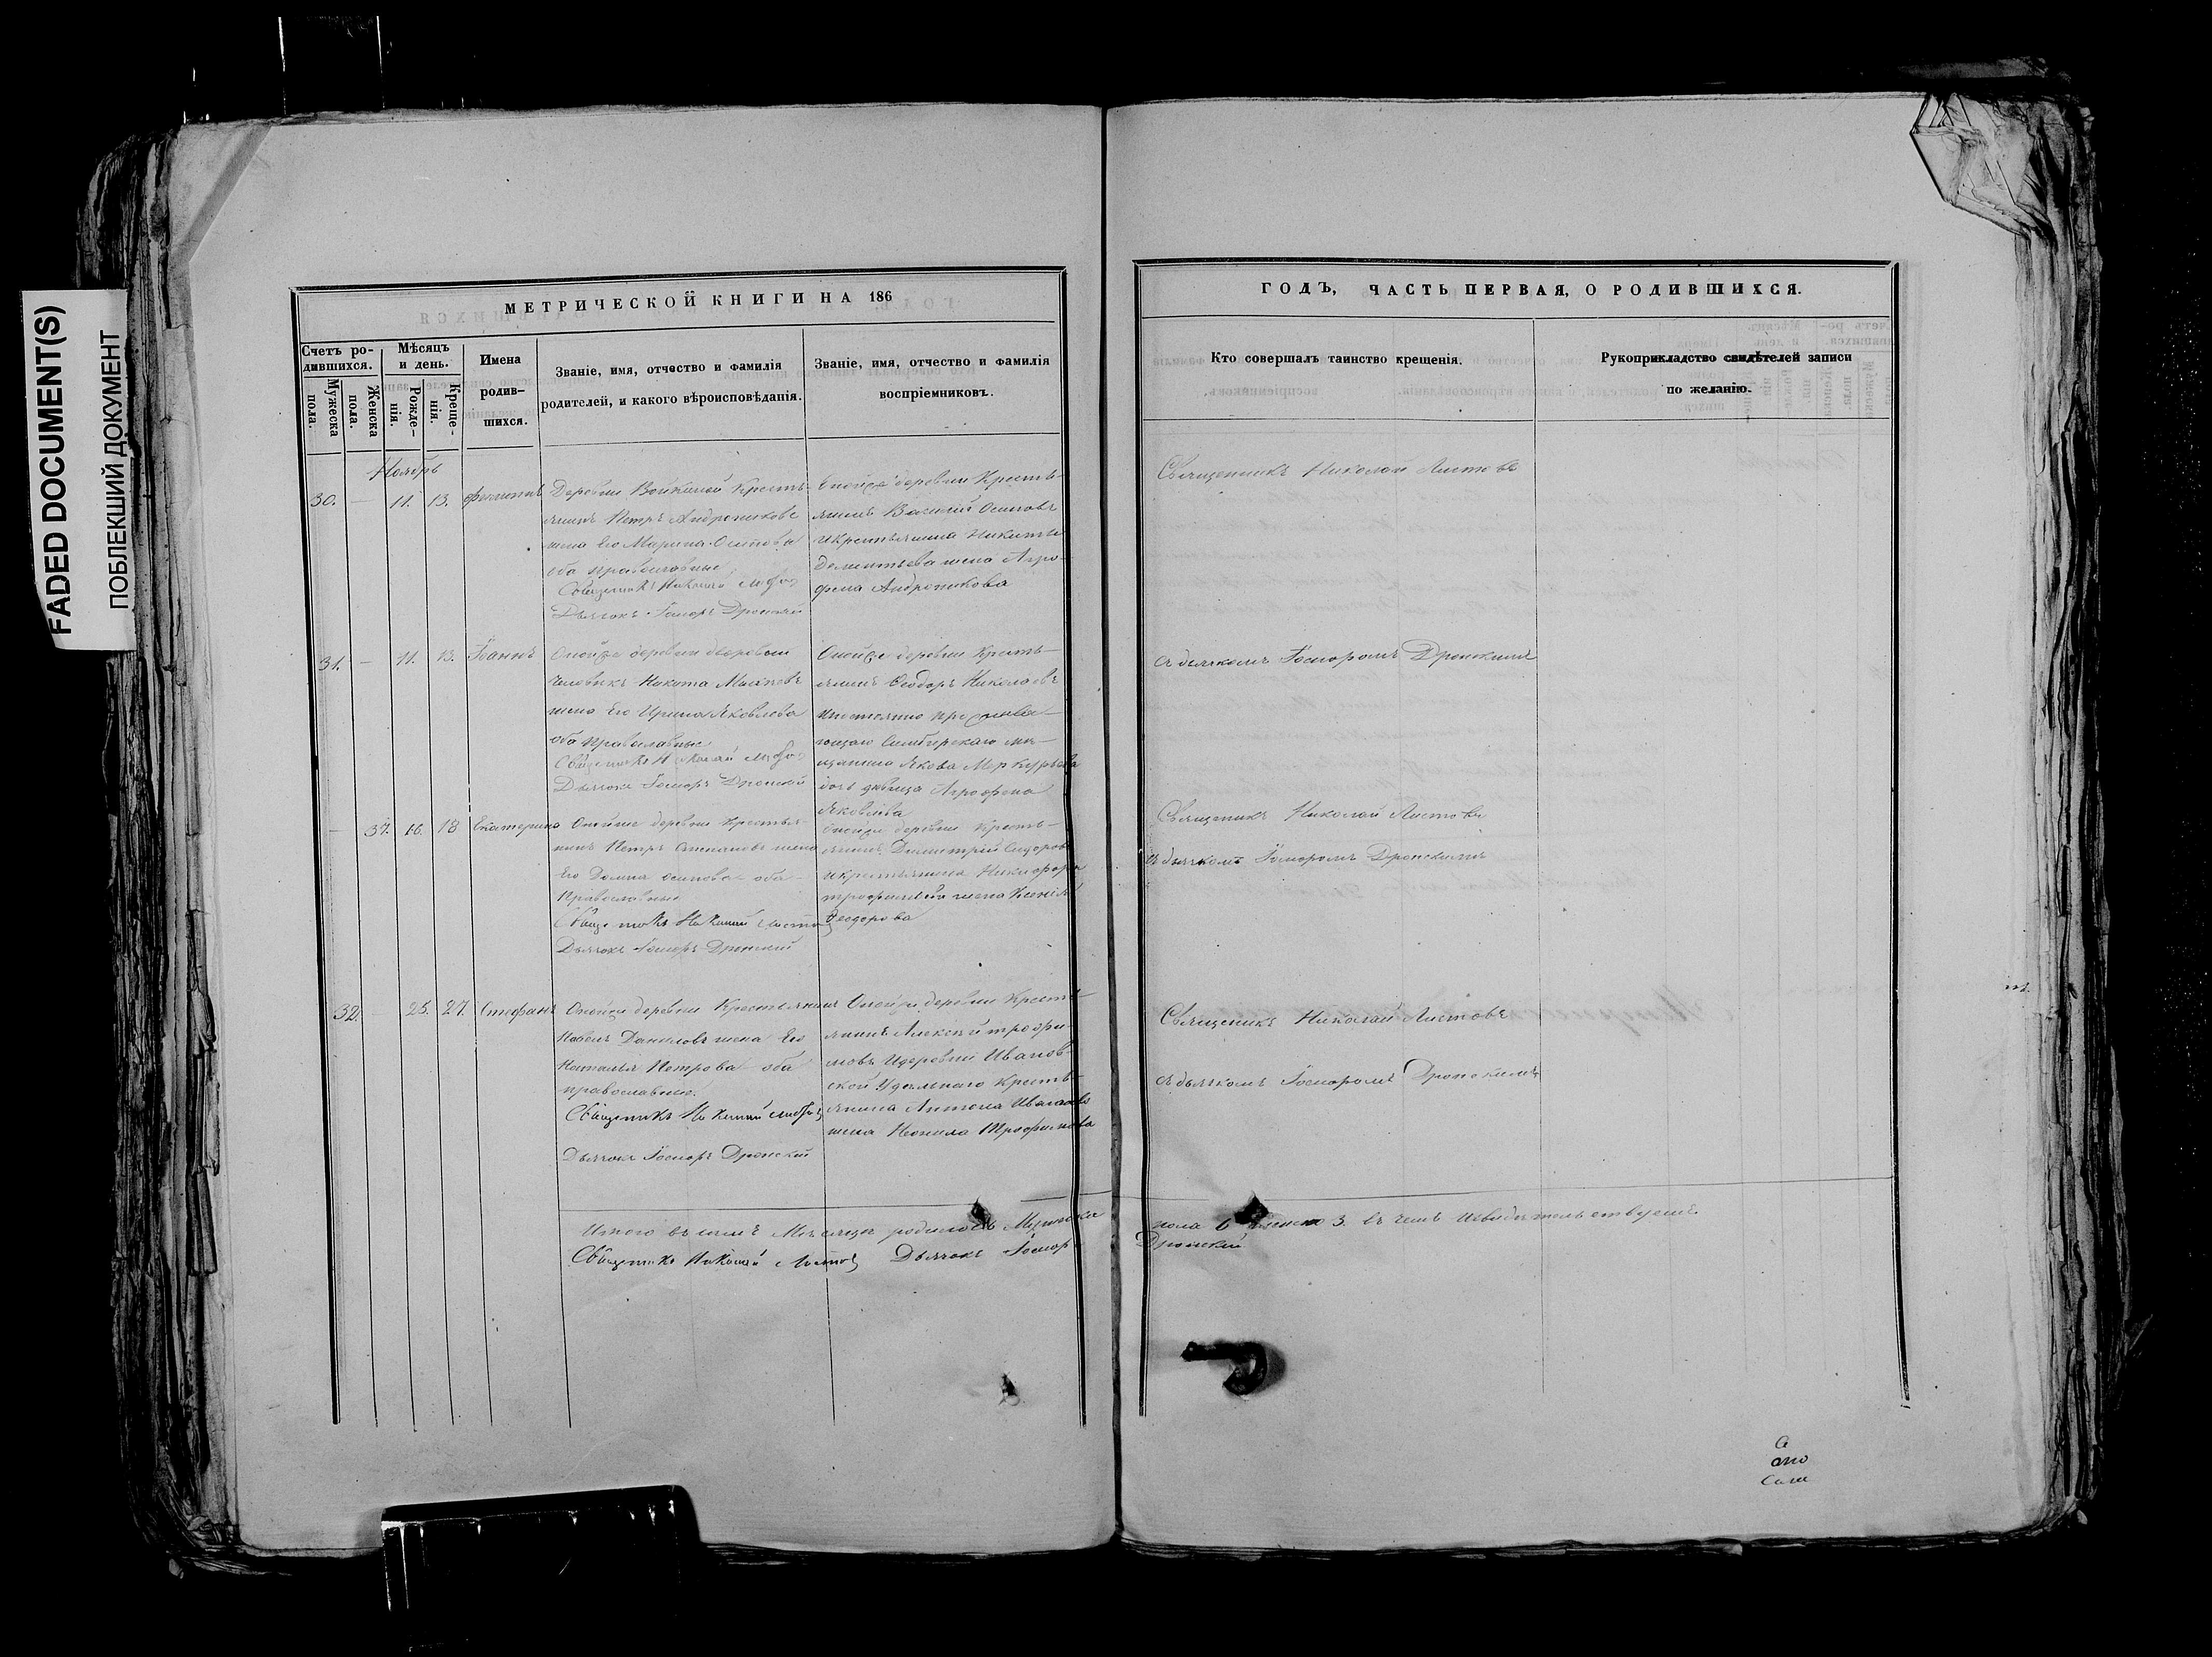 FADED DOCUMENT(S)
ПОБЛЕКШИЙ ДОКУМЕНТ
МЕТРИЧЕСКОЙ КНИГИ НА 186
Счетъ ро-
дившихся.
Мужеска
пола.
Женска
пола.
Мѣсяцъ
и день.
Рожде-
нія.
Креще-
нія.
Имена
родив-
шихся.
Званіе, имя, отчество и фамилія
родителей, и какого вѣроисповѣданія.
Званіе, имя, отчество и фамилія
воспріемниковъ.
Ноябрь
30. — 11. 13. Филиппъ
Деревни Войкиной Кресть-
янинъ Петръ Андрониковъ
жена Его Марина Осипова
оба православные
Священникъ Николай Листовъ
Дьячокъ Гоморъ Дронскій
Оной же деревни Кресть-
янинъ Василий Осиповъ
и крестьянина Никиты
Дементьева жена Агро-
фена Андроникова
31. — 11. 13. Іоаннъ
Оной же деревни дворовый
Человѣкъ Никита
жена Его Ирина Яковлева
оба православные
Священникъ Николай Листовъ
Дьячокъ Гоморъ Дронскій
Оной же деревни Кресть-
янинъ Феодоръ Николаевъ
и постоянно прожива-
ющаго Симбирскаго мѣ-
щанина Якова Меркурьева
дочь девица Агрофена
Яковлева
— 37. 16. 18 Екатерина
Оной же деревни Крестья-
нинъ Петръ Степановъ жена
Его Домна Осипова оба
Православные
Священникъ Николай Листовъ
Дьячокъ Гоморъ Дронскій
Оной же деревни Кресть-
янинъ Димитрій Сидоровъ
и крестьянина Никифора
Трофимова жена Ксенія
Феодорова
32. — 25. 27. Стефанъ
Оной же деревни Крестьянинъ
Павелъ Даниловъ жена Его
Наталья Петрова оба
православные.
Священникъ Николай Листовъ
Дьячокъ Гоморъ Дронскій
Оной же деревни Кресть-
янинъ Алексѣй Трофи-
мовъ и деревни Иванов-
ской Удѣльнаго Кресть-
янина Антона Иванова
жена Неонила Трофимова
Итого въ семъ Мѣсяцѣ родилось Мужеска
Священникъ Николай Листовъ Дьячокъ Гоморъ
ГОДЪ, ЧАСТЬ ПЕРВАЯ, О РОДИВШИХСЯ.
Кто совершалъ таинство крещенія.
Рукоприкладство свидѣтелей записи
по желанію.
Священникъ Николай Листовъ
съ дьячкомъ Гоморомъ Дронскимъ
Священникъ Николай Листовъ
съ дьячкомъ Гоморомъ Дронскимъ
Священникъ Николай Листовъ
съ дьячкомъ Гоморомъ Дронскимъ
пола 6 женска 3. въ чемъ и свидѣтельствуемъ.
Дронскій